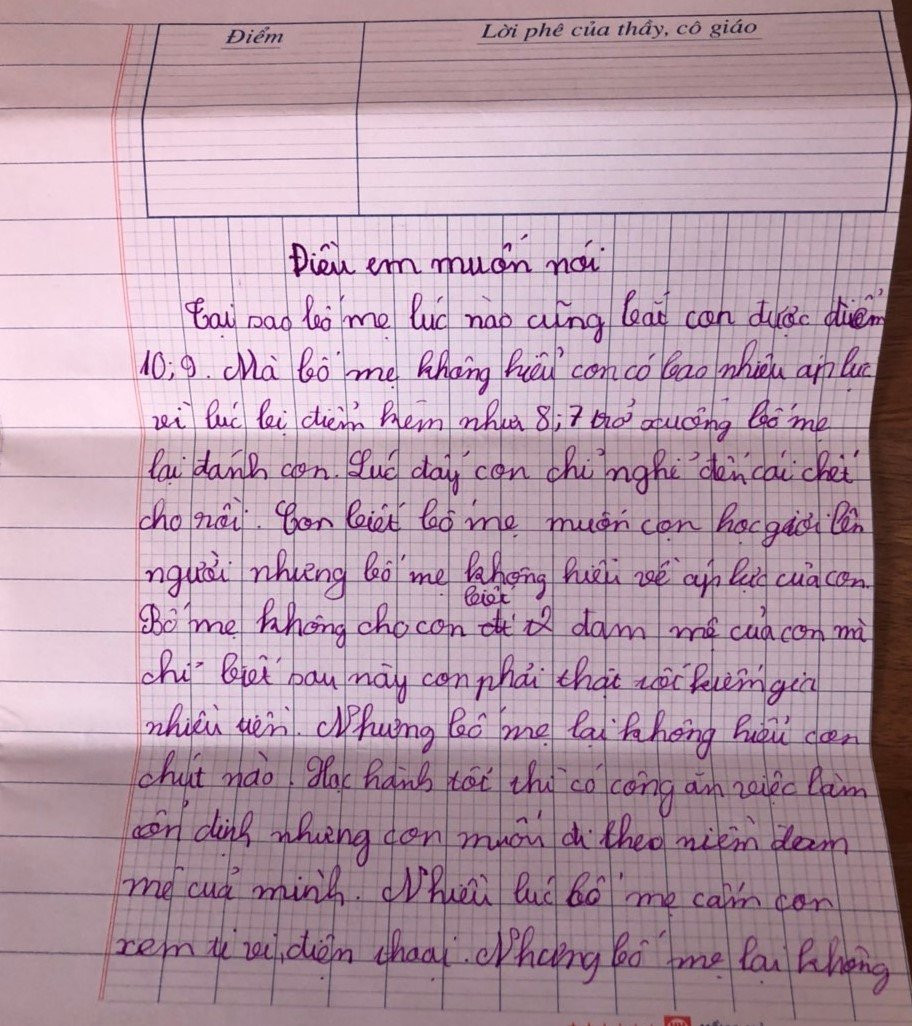 Điểm
Lời phê của thầy, cô giáo
Điều em muốn nói
Tại sao bố mẹ lúc nào cũng bắt con được điểm
10; 9. Mà bố mẹ không hiểu con có bao nhiêu áp lực
vì lúc bị điểm kém như 8; 7 trở xuống bố mẹ
lại đánh con. Lúc đấy con chỉ nghĩ đến cái chết
cho rồi. Con biết bố mẹ muốn con học giỏi lên
người nhưng bố mẹ không hiểu về áp lực của con.
biết
Bố mẹ không cho con đam mê của con mà
chỉ biết sau này con phải thật tốt kiếm
nhiều tiền. Nhưng bố mẹ lại không hiểu con
chút nào. Học hành tốt thì có công ăn việc làm
ổn định nhưng con muốn đi theo niềm đam
mê của mình. Nhiều lúc bố mẹ cấm con
xem ti vi, điện thoại. Nhưng bố mẹ lại không